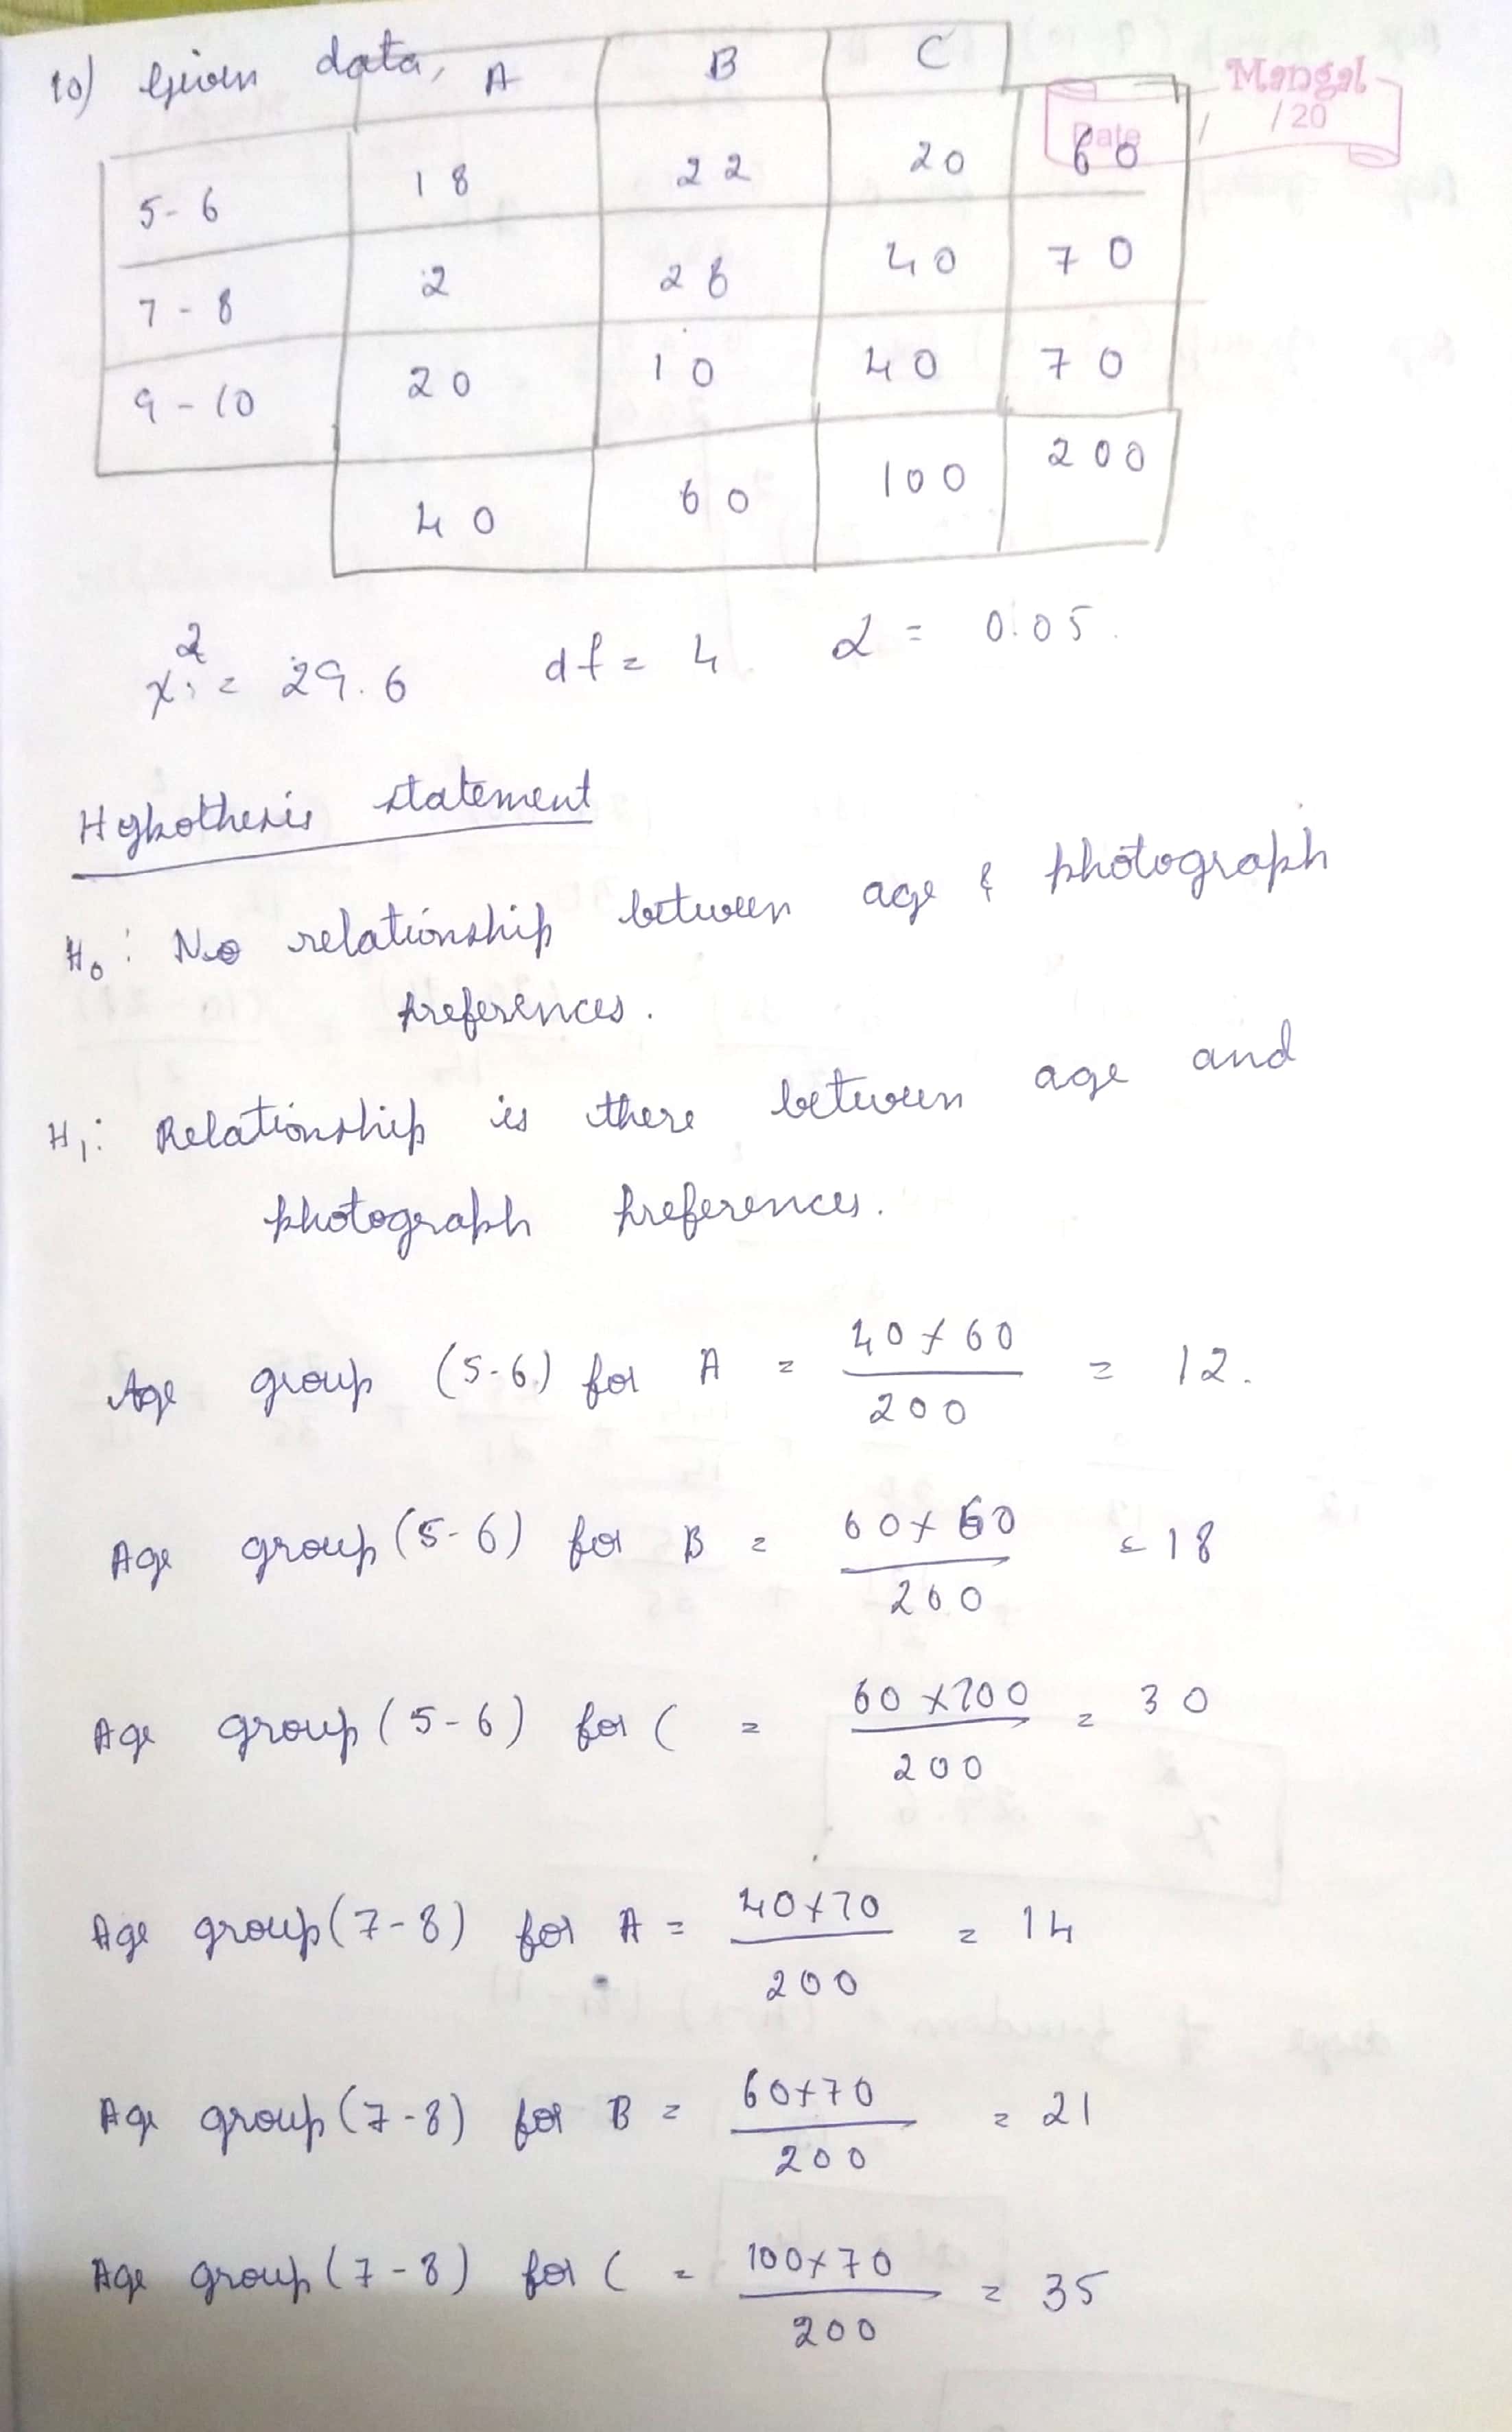 10) Given data,
A B C
Mangal
Date / /20
5-6 18 22 20 60
7-8 2 28 40 70
9-10 20 10 40 70
40 60 100 200
χ² = 29.6 df = 4 α = 0.05.
Hypothesis statement
H₀: No relationship between age & photograph
preferences.
H₁: Relationship is there between age and
photograph preferences.
Age group (5-6) for A = 40×60/200 = 12.
Age group (5-6) for B = 60×60/200 = 18
Age group (5-6) for C = 60×100/200 = 30
Age group (7-8) for A = 40×70/200 = 14
Age group (7-8) for B = 60×70/200 = 21
Age group (7-8) for C = 100×70/200 = 35